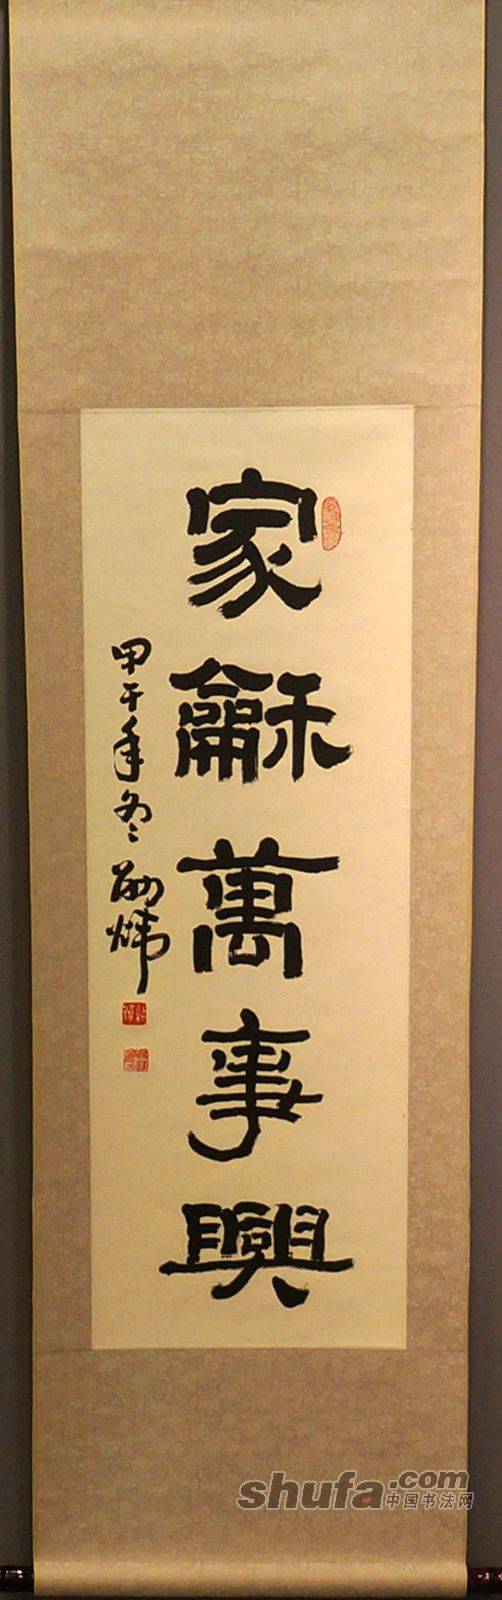 家龢萬事興
甲午年冬 劭煒
shufa.com
中国书法网